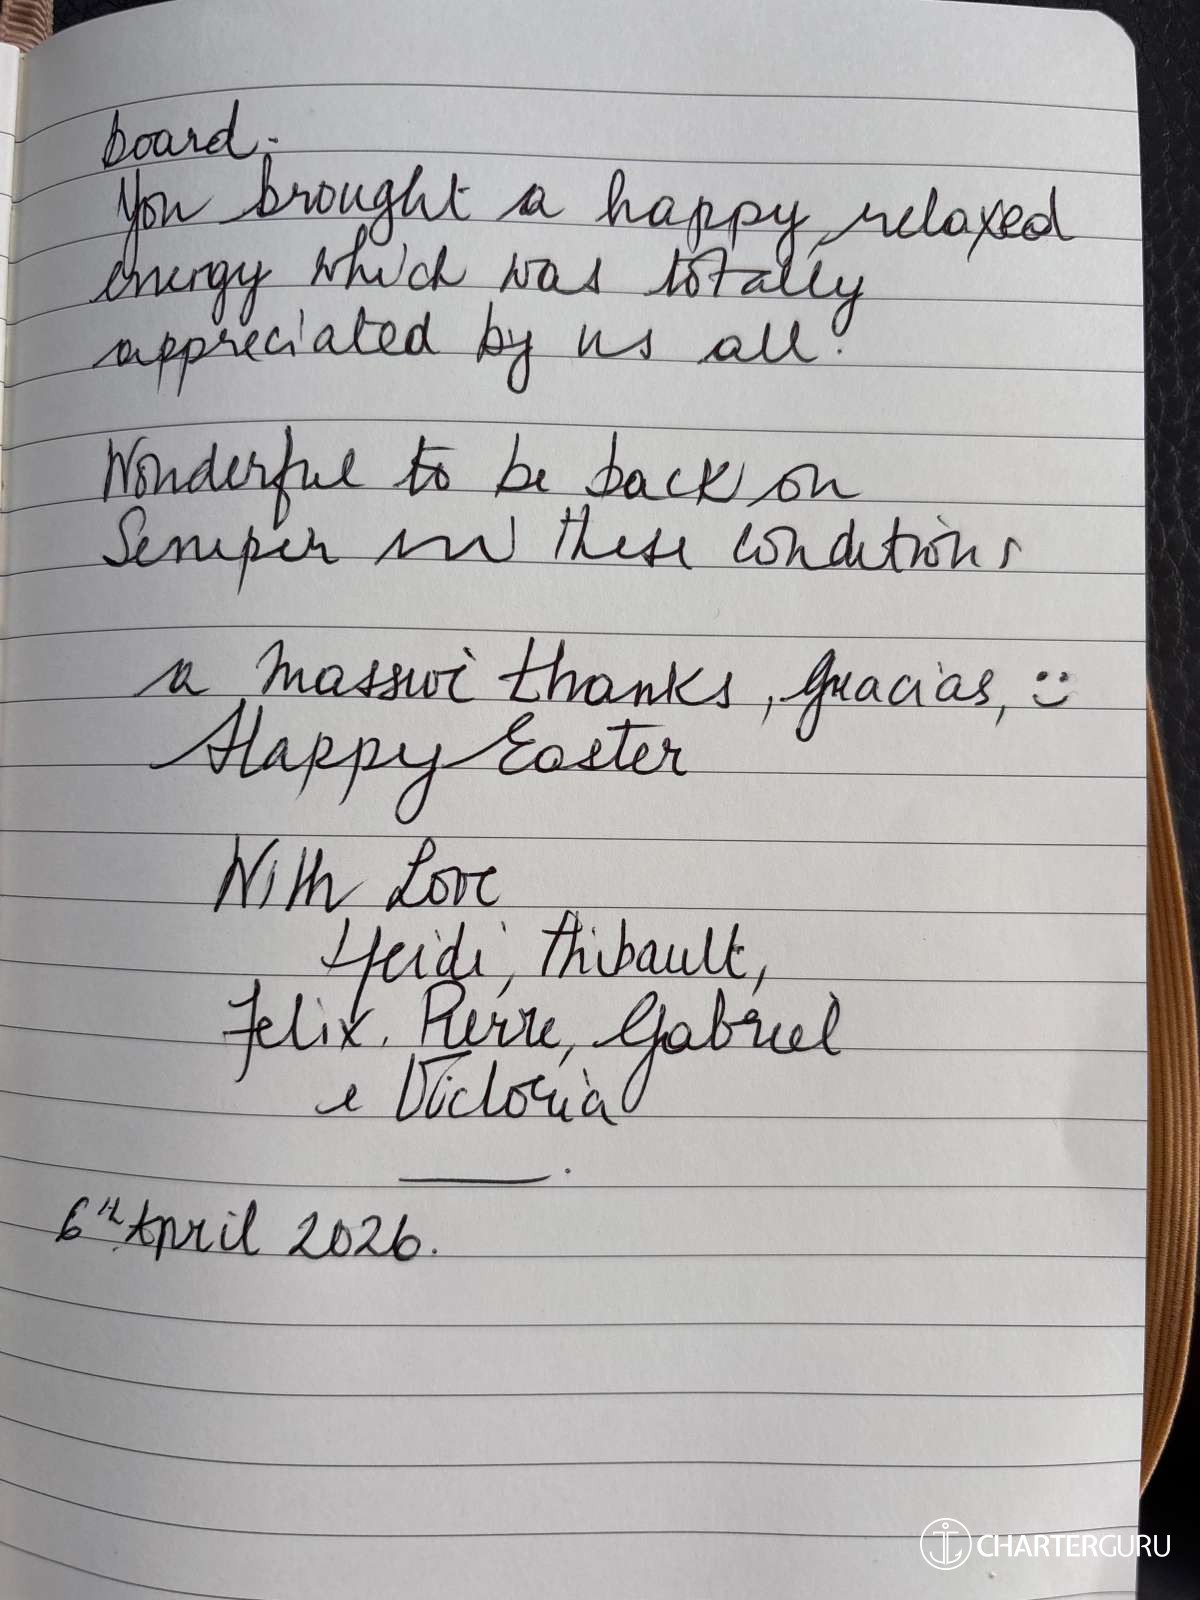 board.
You brought a happy, relaxed
energy which was totally
appreciated by us all.
Wonderful to be back on
Semper in these conditions
a massive thanks, Gracias, :)
Happy Easter
With Love
Heidi, Thibault,
Felix, Pierre, Gabriel
e Victoria
6th April 2026.
CHARTERGURU